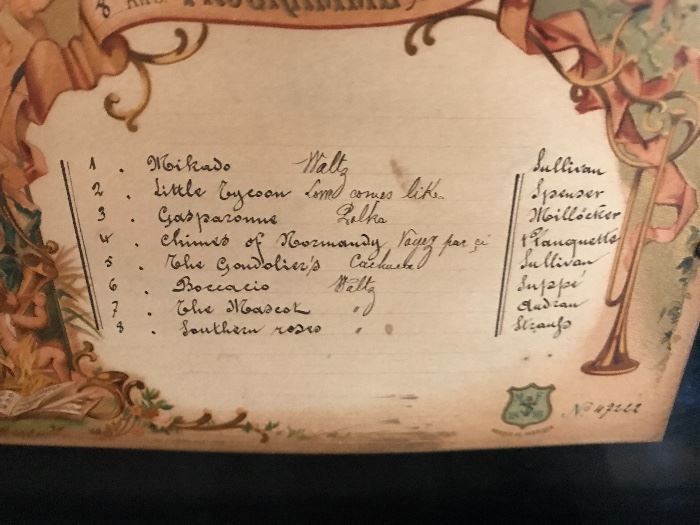 PROGRAMME
1 . Mikado Waltz Sullivan
2 . Little Tycoon Love comes like Spenser
3 . Gasparonne Polka Millöcker
4 . Chimes of Normandy Voyez par çi Planquette
5 . The Gondolier's Cachuca Sullivan
6 . Boccacio Waltz Suppé
7 . The Mascot " Audran
8 . Southern roses " " Strauss
No 49222